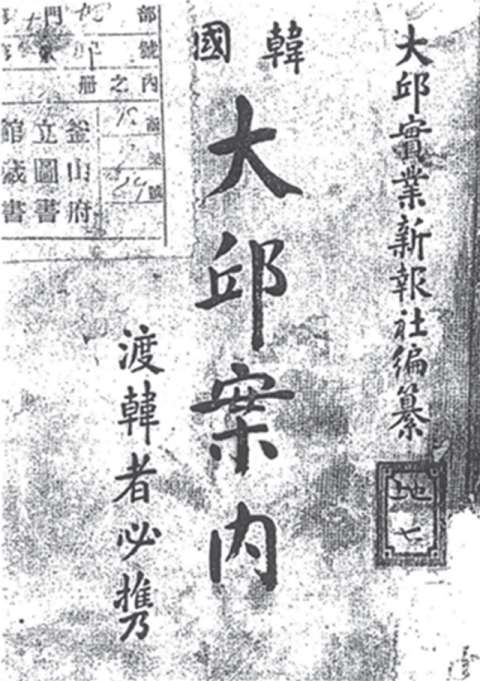 大邱實業新報社編纂
韓國
大邱案内
渡韓者必携
地七
部
門
號
内之册
號
釜山府
立圖書
館藏書